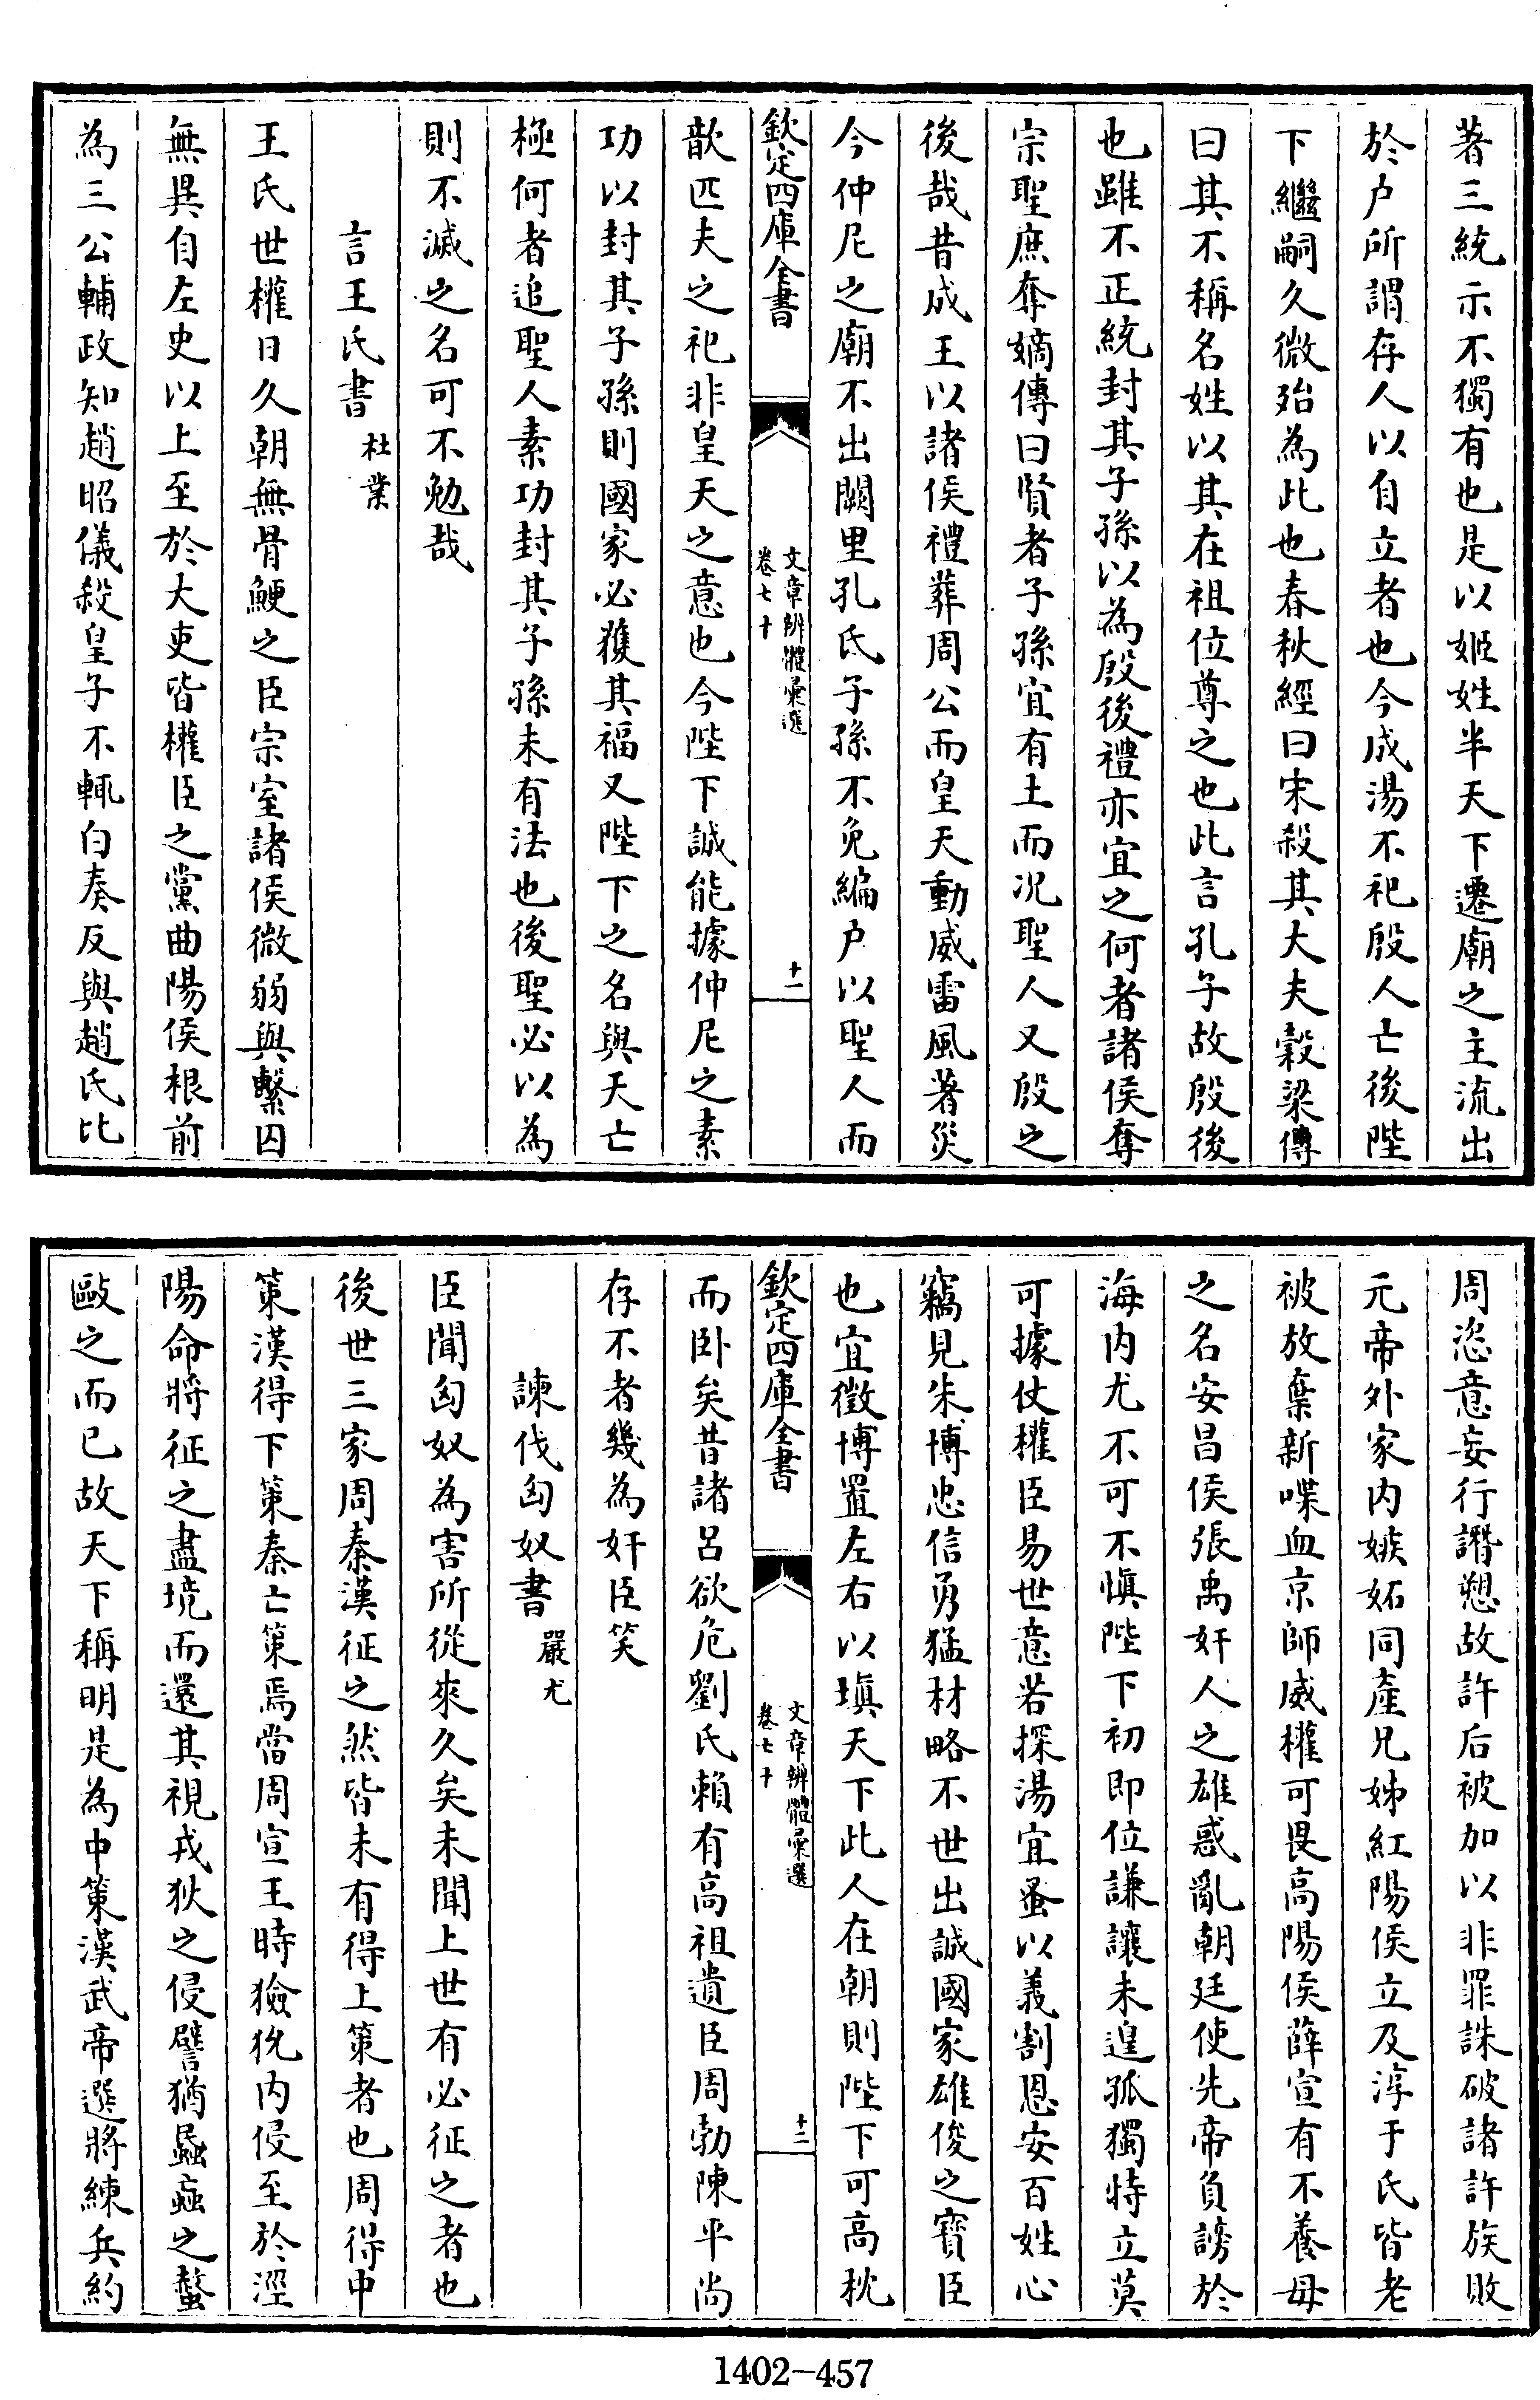 著三統示不獨有也是以姬姓半天下遷廟之主流出
於户所謂存人以自立者也今成湯不祀殷人亡後陛
下繼嗣久微殆為此也春秋經曰宋殺其大夫穀梁傳
曰其不稱名姓以其在祖位尊之也此言孔子故殷後
也雖不正統封其子孫以為殷後禮亦宜之何者諸侯奪
宗聖庶奪嫡傳曰賢者子孫宜有土而况聖人又殷之
後哉昔成王以諸侯禮葬周公而皇天動威雷風著災
今仲尼之廟不出闕里孔氏子孫不免編户以聖人而
欽定四庫全書
文章辨體彙選
卷七十
十一
歆匹夫之祀非皇天之意也今陛下誠能據仲尼之素
功以封其子孫則國家必獲其福又陛下之名與天亡
極何者追聖人素功封其子孫未有法也後聖必以為
則不滅之名可不勉哉
言王氏書 杜業
王氏世權日久朝無骨鯁之臣宗室諸侯微弱與繫囚
無異自左史以上至於大吏皆權臣之黨曲陽侯根前
為三公輔政知趙昭儀殺皇子不輒白奏反與趙氏比
周恣意妄行譖愬故許后被加以非罪誅破諸許族敗
元帝外家内嫉妬同產兄姊紅陽侯立及淳于氏皆老
被放棄新喋血京師威權可畏高陽侯薛宣有不養母
之名安昌侯張禹奸人之雄惑亂朝廷使先帝負謗於
海内尤不可不慎陛下初即位謙讓未遑孤獨特立莫
可據仗權臣易世意若探湯宜蚤以義割恩安百姓心
竊見朱博忠信勇猛材略不世出誠國家雄俊之寳臣
也宜徵博置左右以塡天下此人在朝則陛下可高枕
欽定四庫全書
文章辨體彙選
卷七十
十二
而卧矣昔諸呂欲危劉氏賴有高祖遺臣周勃陳平尚
存不者幾為奸臣笑
諫伐匈奴書 嚴尤
臣聞匈奴為害所從來久矣未聞上世有必征之者也
後世三家周秦漢征之然皆未有得上策者也周得中
策漢得下策秦亡策焉當周宣王時獫狁内侵至於涇
陽命將征之盡境而還其視戎狄之侵譬猶蟁蝱之螫
敺之而已故天下稱明是為中策漢武帝選將練兵約
1402-457